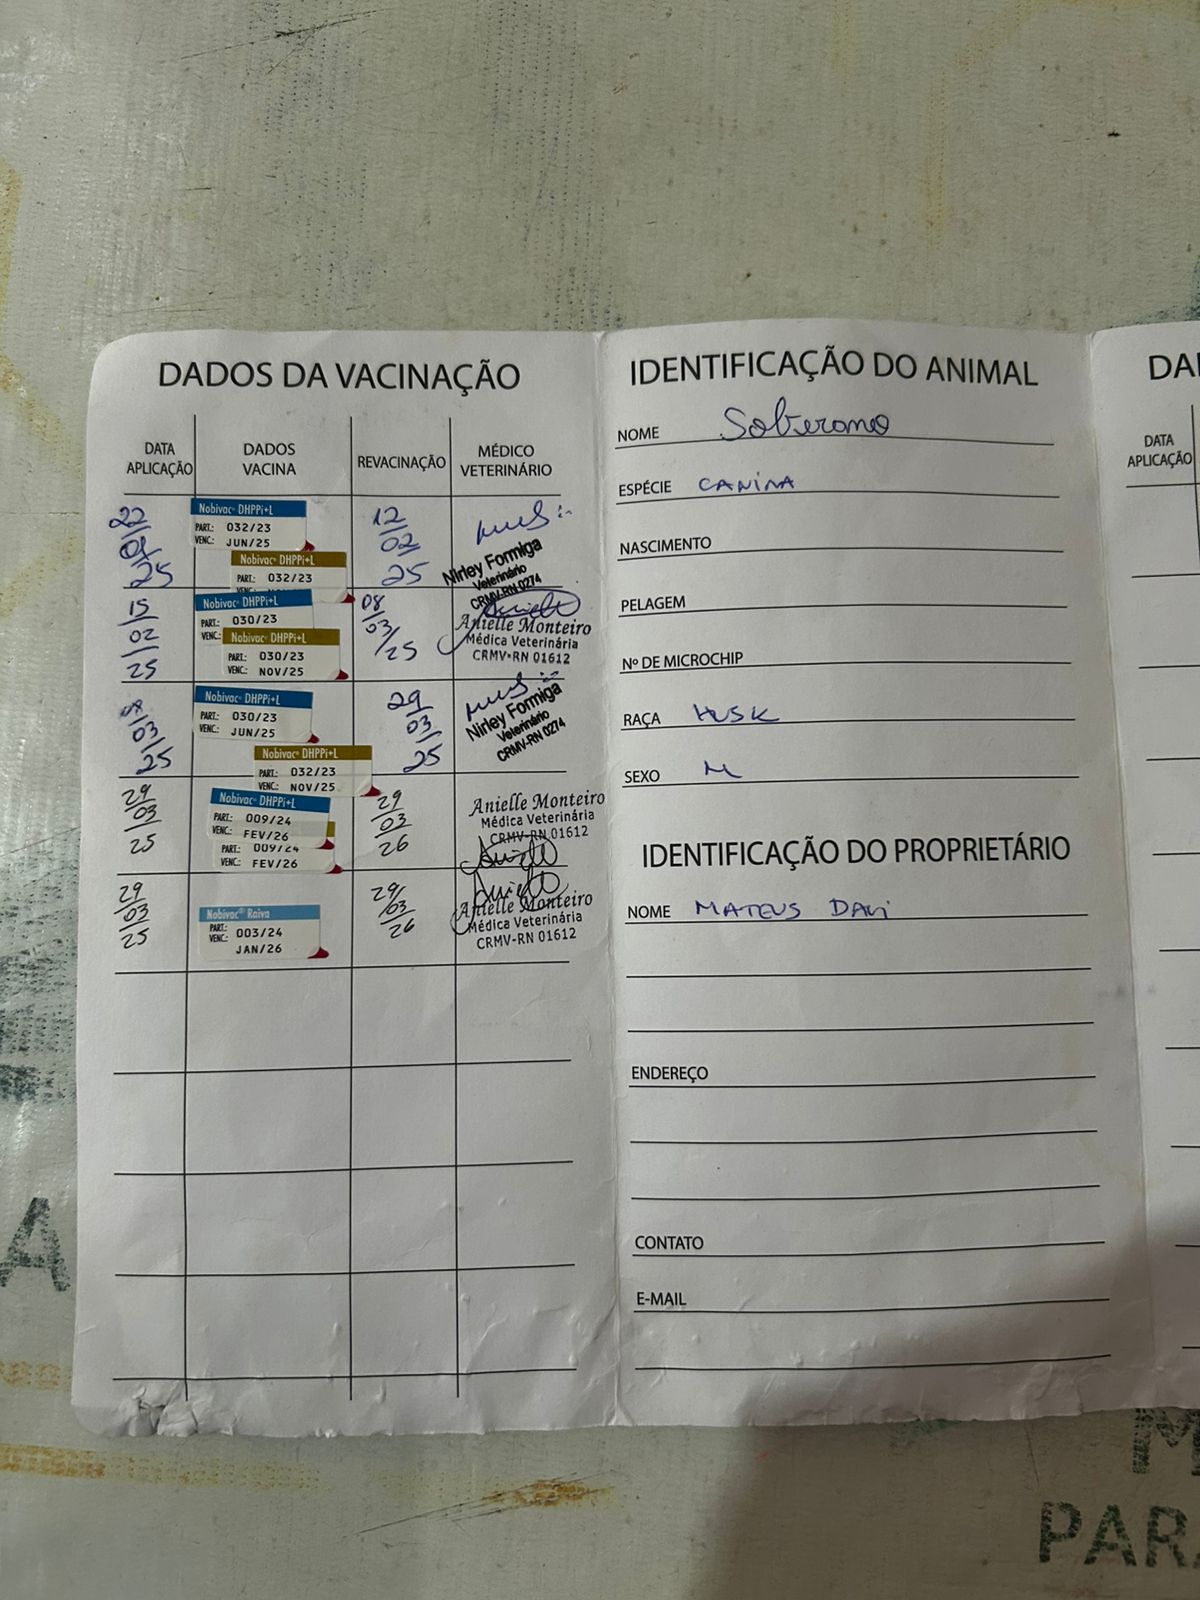 DADOS DA VACINAÇÃO
DATA APLICAÇÃO
DADOS VACINA
REVACINAÇÃO
MÉDICO VETERINÁRIO
22
25
Nobivac® DHPPi+L
PART.: 032/23
VENC.: JUN/25
Nobivac® DHPPi+L
PART.: 032/23
12
02
25
Nirley Formiga
Veterinário
CRMV-RN 0274
15
02
25
Nobivac® DHPPi+L
PART.: 030/23
VENC.:
Nobivac® DHPPi+L
PART.: 030/23
VENC.: NOV/25
08
03
/25
Anielle Monteiro
Médica Veterinária
CRMV-RN 01612
03
25
Nobivac® DHPPi+L
PART.: 030/23
VENC.: JUN/25
Nobivac® DHPPi+L
PART.: 032/23
VENC.: NOV/25
29
03
25
Nirley Formiga
Veterinário
CRMV-RN 0274
29
03
25
Nobivac® DHPPi+L
PART.: 009/24
VENC.: FEV/26
PART.: 009/24
VENC.: FEV/26
29
03
26
Anielle Monteiro
Médica Veterinária
CRMV-RN 01612
29
03
25
Nobivac® Raiva
PART.: 003/24
VENC.: JAN/26
29/
03
26
Anielle Monteiro
Médica Veterinária
CRMV-RN 01612
IDENTIFICAÇÃO DO ANIMAL
NOME Soberano
ESPÉCIE CANINA
NASCIMENTO
PELAGEM
Nº DE MICROCHIP
RAÇA HUSK
SEXO M
IDENTIFICAÇÃO DO PROPRIETÁRIO
NOME MATEUS DAVI
ENDEREÇO
CONTATO
E-MAIL
DA
DATA APLICAÇÃO
A
M
PAR